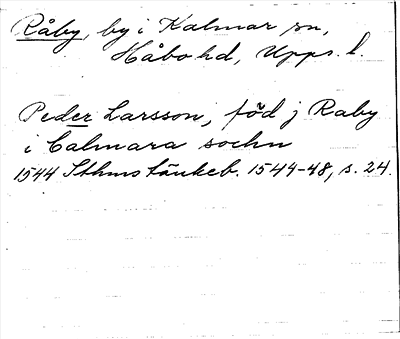 Råby, by i Kalmar sn,
Håbo hd, Upps. l.
Peder Larsson, född j Raby
i Calmara sochn
1544 Sthms tänkeb. 1544-48, s. 24.